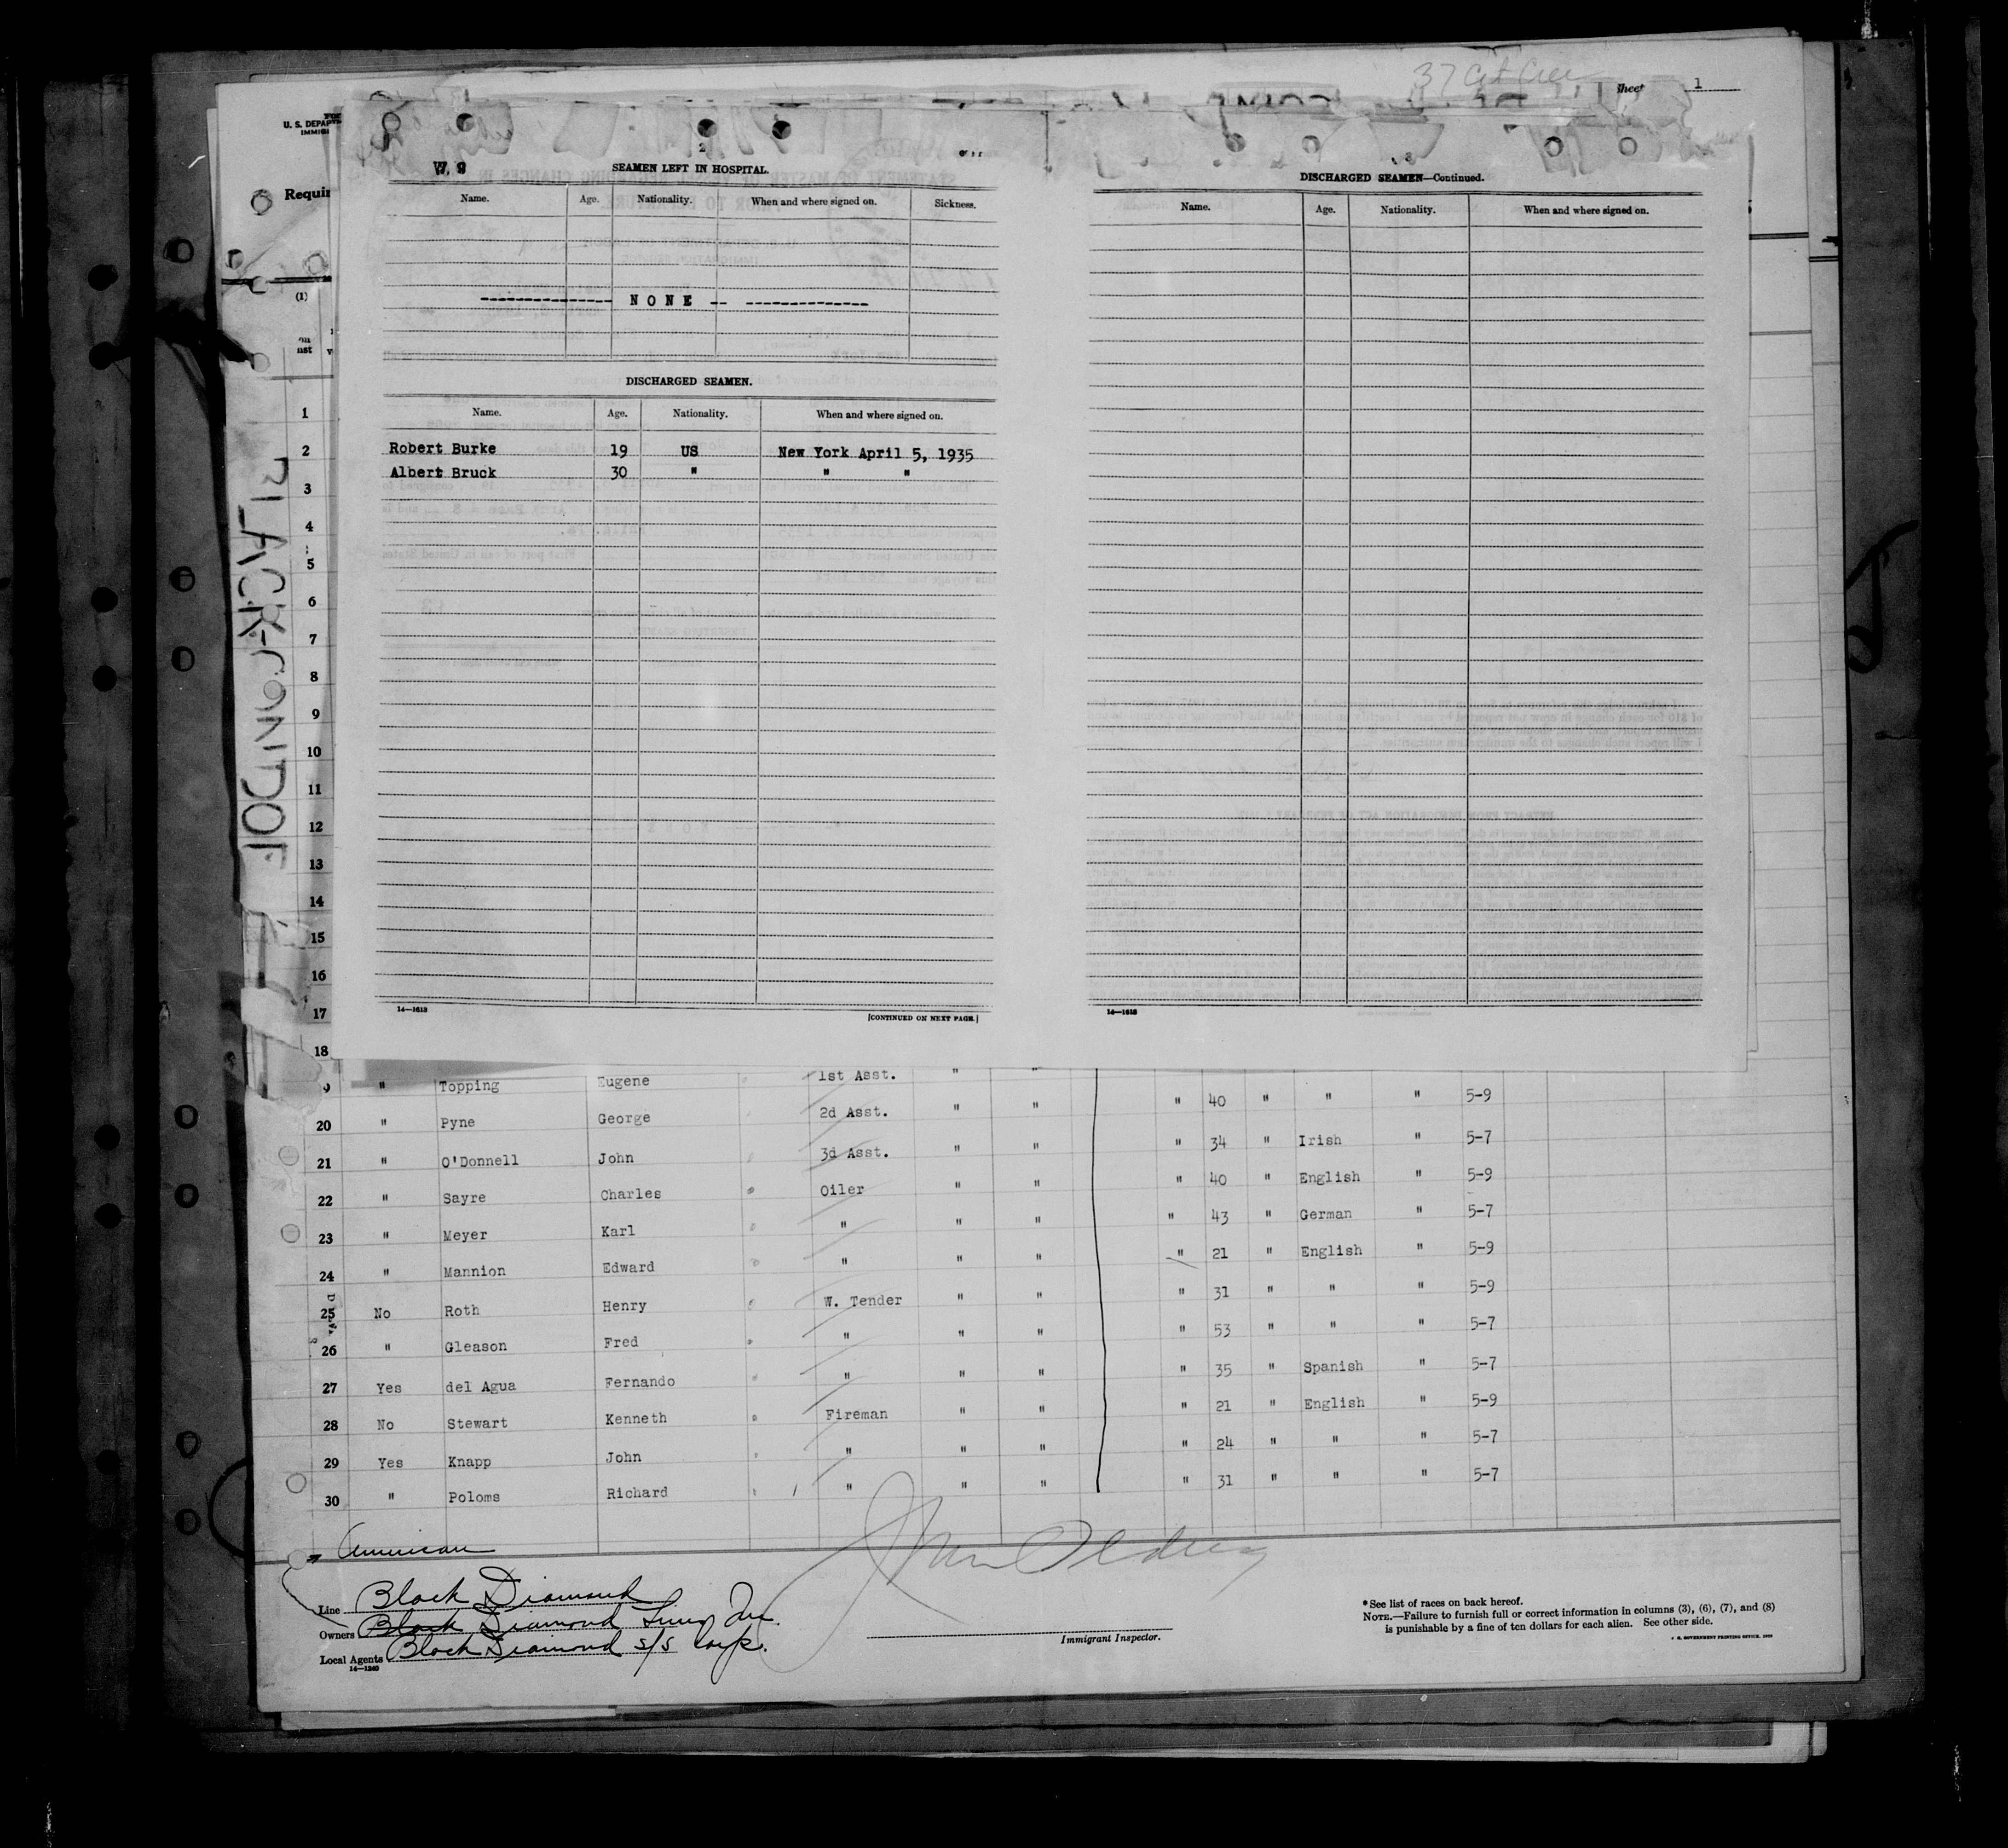 37 Cit Crew
Sheet 1
U. S. DEPAR
IMMIGR
Requir
(1)
2
W. 9
SEAMEN LEFT IN HOSPITAL.
Name. Age. Nationality. When and where signed on. Sickness.
NONE
DISCHARGED SEAMEN.
Name. Age. Nationality. When and where signed on.
Robert Burke 19 US New York April 5, 1935
Albert Bruck 30 " " "
14—1613
[CONTINUED ON NEXT PAGE.]
3
DISCHARGED SEAMEN—Continued.
Name. Age. Nationality. When and where signed on.
14—1613
BLACK CONDOR
1
2
3
4
5
6
7
8
9
10
11
12
13
14
15
16
17
18
" Topping Eugene 1st Asst. " "
20 " Pyne George 2d Asst. " " " 40 " " " 5-9
21 " O'Donnell John 3d Asst. " " " 34 " Irish " 5-7
22 " Sayre Charles Oiler " " " 40 " English " 5-9
23 " Meyer Karl " " " " 43 " German " 5-7
24 " Mannion Edward " " " " 21 " English " 5-9
25 No Roth Henry W. Tender " " " 31 " " " 5-9
26 " Gleason Fred " " " " 53 " " " 5-7
27 Yes del Agua Fernando " " " " 35 " Spanish " 5-7
28 No Stewart Kenneth Fireman " " " 21 " English " 5-9
29 Yes Knapp John " " " " 24 " " " 5-7
30 " Poloms Richard " " " " 31 " " " 5-7
American
Line Black Diamond
Owners Black Diamond Lines Inc.
Local Agents Black Diamond S/S Corp.
14—1240
Immigrant Inspector.
* See list of races on back hereof.
NOTE.—Failure to furnish full or correct information in columns (3), (6), (7), and (8)
is punishable by a fine of ten dollars for each alien. See other side.